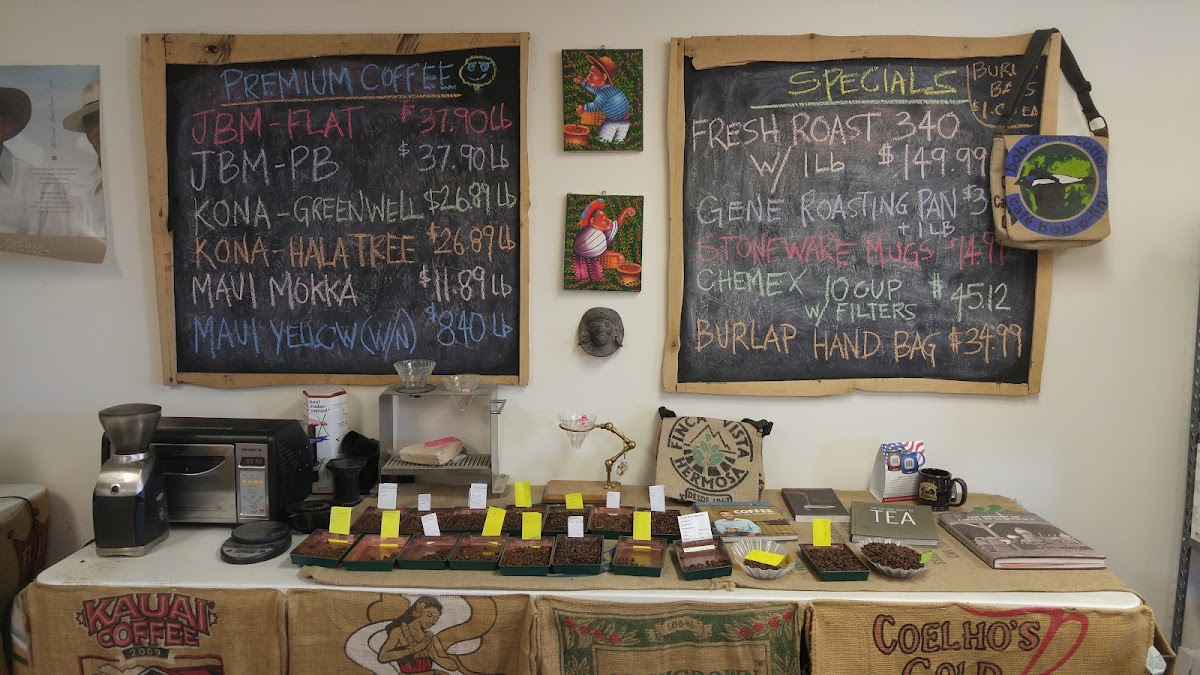 PREMIUM COFFEE
JBM-FLAT $37.90 Lb
JBM-PB $37.90 Lb
KONA-GREENWELL $26.89 Lb
KONA-HALA TREE $26.89 Lb
MAUI MOKKA $11.89 Lb
MAUI YELLOW (W/N) $8.40 Lb
SPECIALS
FRESH ROAST 340
W/ 1Lb $149.99
GENE ROASTING PAN $3
+ 1LB
STONEWARE MUGS
CHEMEX 10 CUP $45.12
W/ FILTERS
BURLAP HAND BAG $34.99
FINCA VISTA
HERMOSA
DESDE
COFFEE
TEA
KAUAI
COFFEE
2009
COELHO'S
GOLD